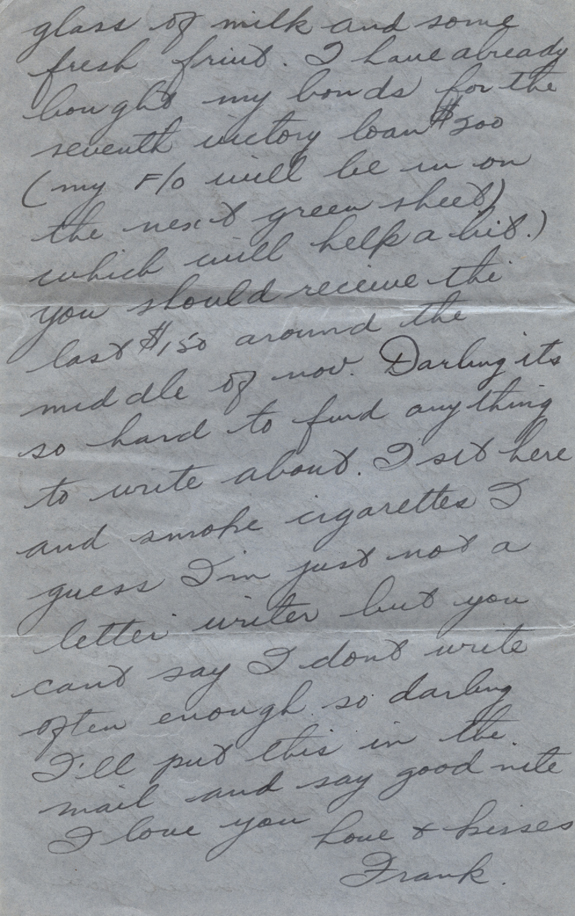 glass of milk and some
fresh friut. I have already
bought my bonds for the
seventh victory loan $200
(my F/O will be in on
the next green sheet)
which will help a bit.)
you should receive the
last $150 around the
middle of nov. Darling its
so hard to find anything
to write about. I sit here
and smoke cigarettes I
guess I'm just not a
letter writer but you
cant say I dont write
often enough. so darling
I'll put this in the
mail and say good nite
I love you love & kisses
Frank.